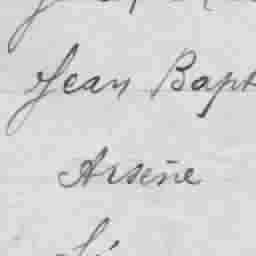 Jean Bapt
Arsène